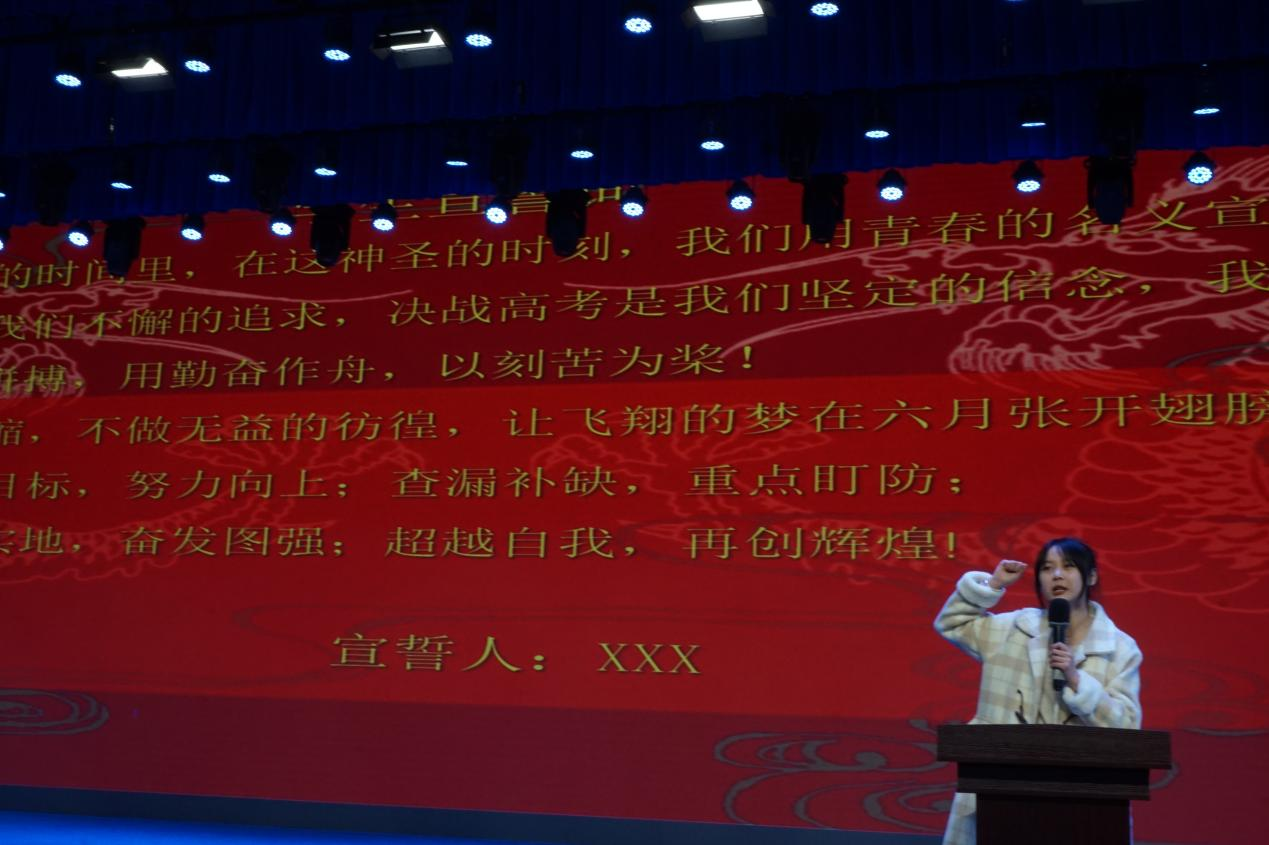 宣誓
的时间里，在这神圣的时刻，我们用青春的名义宣
我们不懈的追求，决战高考是我们坚定的信念，我
拼搏，用勤奋作舟，以刻苦为桨！
缩，不做无益的彷徨，让飞翔的梦在六月张开翅膀
目标，努力向上；查漏补缺，重点盯防；
实地，奋发图强；超越自我，再创辉煌！
宣誓人：XXX